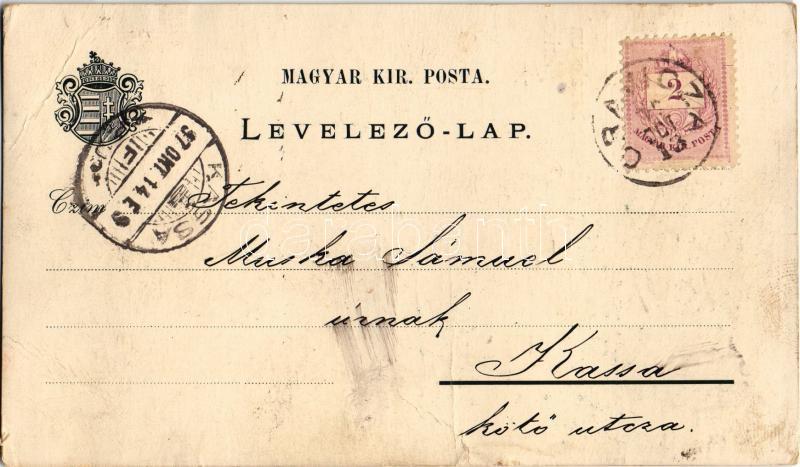 MAGYAR KIR. POSTA.
LEVELEZŐ-LAP.
2
MAGYAR KIR. POSTA
KASSA
97 OKT. 14 E 9
Czím Tekintetes
Muska Sámuel
úrnak
Kassa
kötő utcza.
darabanth